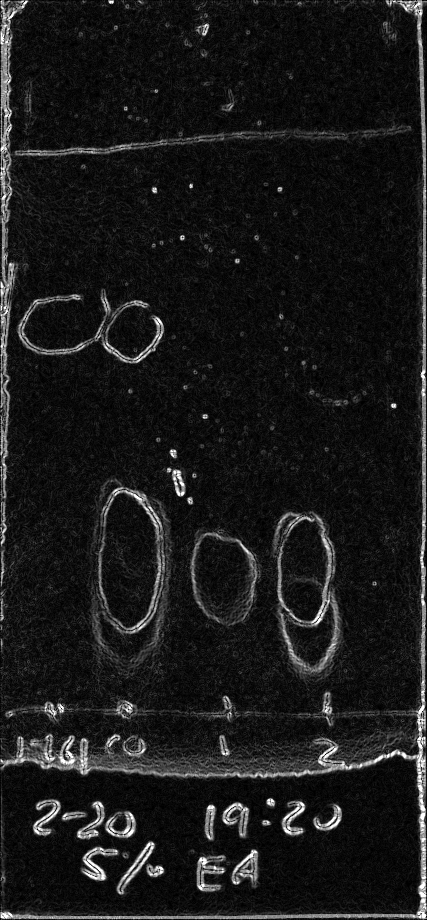 1-161 CO 1 2
2-20 19:20
5% EA